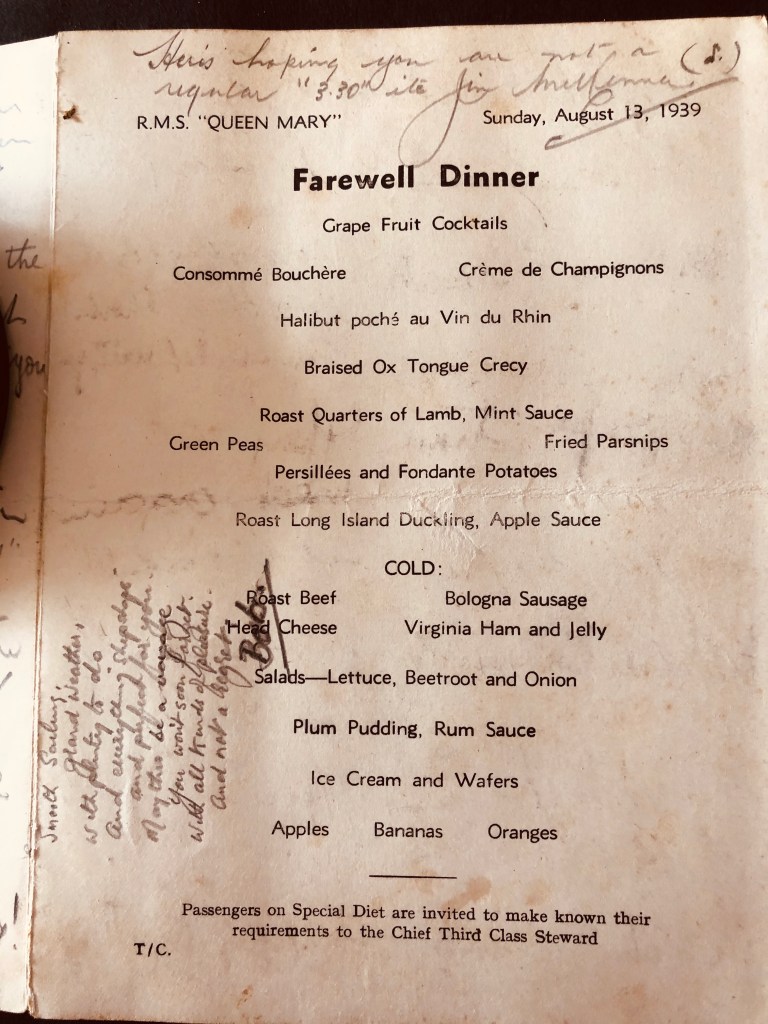 Here's hoping you are not a (S.)
regular "3.30" ite Jim
R.M.S. "QUEEN MARY"
Sunday, August 13, 1939
Farewell Dinner
Grape Fruit Cocktails
Consommé Bouchère Crème de Champignons
Halibut poché au Vin du Rhin
Braised Ox Tongue Crecy
Roast Quarters of Lamb, Mint Sauce
Green Peas Fried Parsnips
Persillées and Fondante Potatoes
Roast Long Island Duckling, Apple Sauce
COLD:
Roast Beef Bologna Sausage
Head Cheese Virginia Ham and Jelly
Salads—Lettuce, Beetroot and Onion
Plum Pudding, Rum Sauce
Ice Cream and Wafers
Apples Bananas Oranges
Passengers on Special Diet are invited to make known their
requirements to the Chief Third Class Steward
T/C.
Smooth Sailing,
Grand Weather,
With plenty to do
And everything "Shipshape"
and perfect for you.
May this be a voyage
You won't soon forget.
With all kinds of pleasure.
And not a regret,
the
you